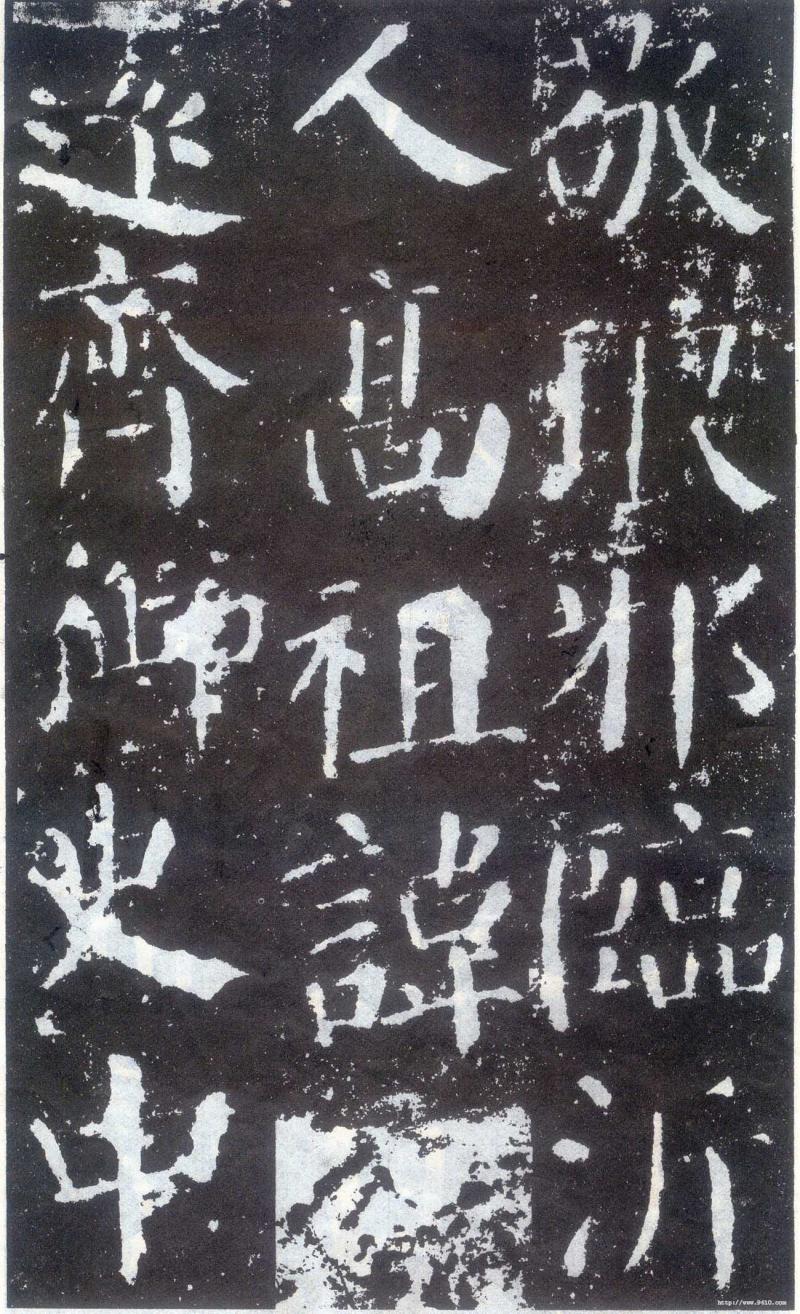 敬琅邪臨沂
人高祖諱
逕齊御史中
http://www.9610.com